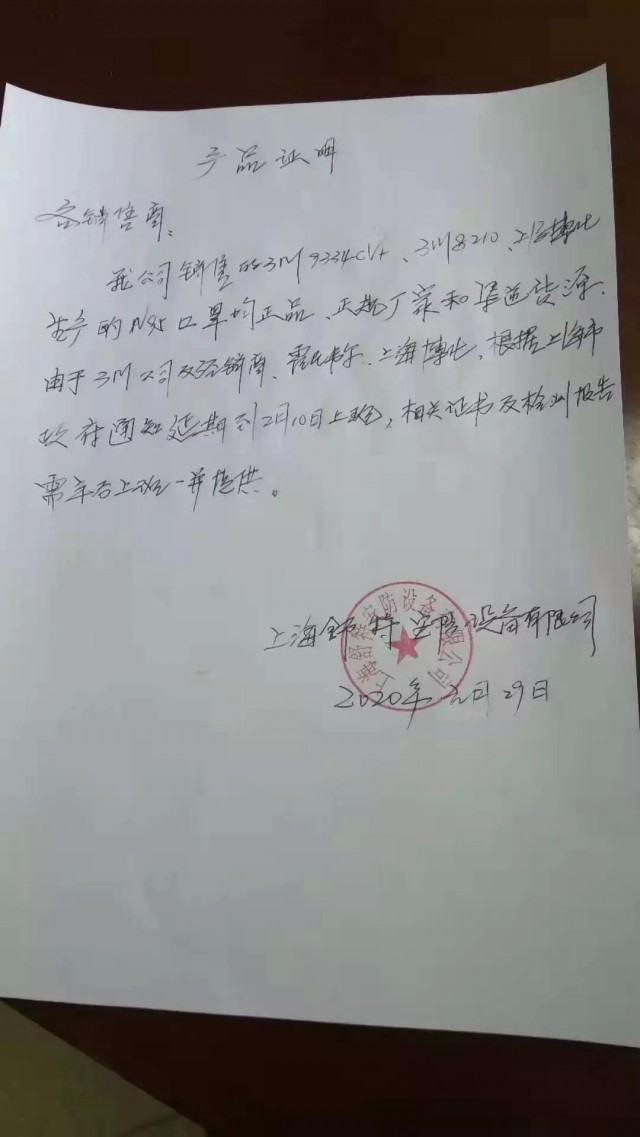 产品证明
各销售商:
我公司销售的3M 9334CV+、3M8210、上海博化
生产的N95口罩均正品、正规厂家和渠道货源.
由于3M公司及经销商、霍尼韦尔、上海博化、根据上海市
政府通知延期到2月10日上班,相关证书及检测报告
需年后上班一并提供。
上海舒特安防设备有限公司
上海舒特安防设备有限公司
2020年元月29日